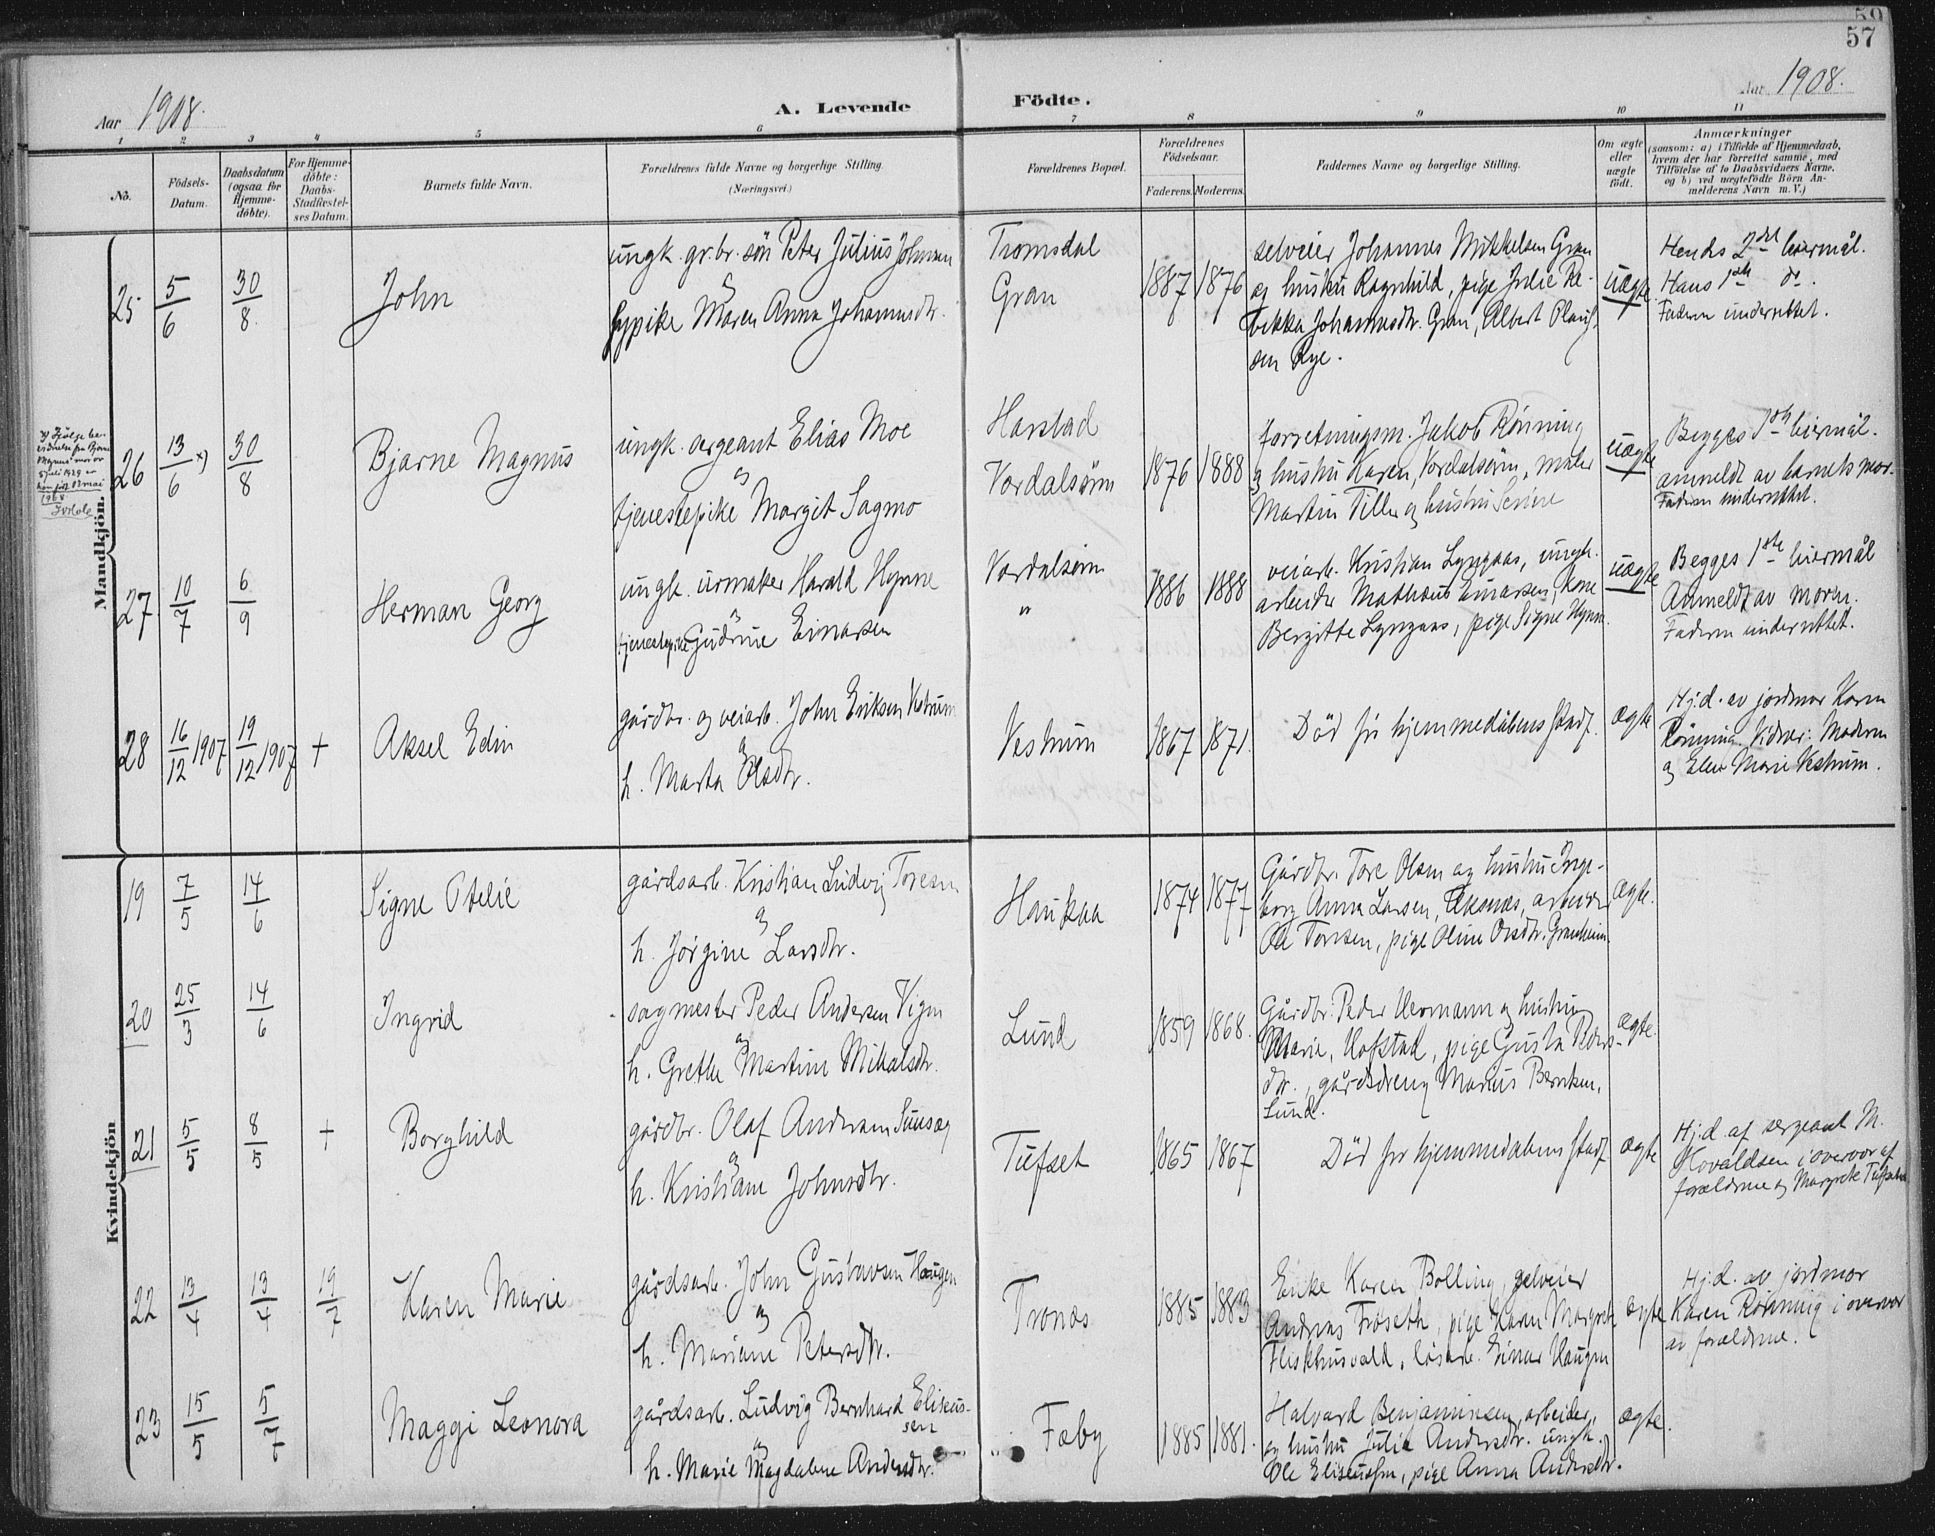 59
57
Aar 1908.
A. Levende Födte.
Aar 1908.
1 2 3 4 5 6 7 8 9 10 11
No.
Födsels-
Datum.
Daabsdatum
(ogsaa for
Hjemme-
döbte).
For Hjemme-
döbte:
Daabs-
Stadfæstel-
ses Datum.
Barnets fulde Navn.
Forældrenes fulde Navne og borgerlige Stilling.
(Næringsvei.)
Forældrenes Bopæl.
Forældrenes
Födselsaar.
Faderens. Moderens.
Faddernes Navne og borgerlige Stilling.
Om ægte
eller
uægte
födt.
Anmærkninger
(saasom: a) i Tilfælde af Hjemmedaab,
hvem der har forrettet samme, med
Tilföielse af to Daabsvidners Navne,
og b) ved uægtefödte Börn An-
melderens Navn m. V.)
Mandkjön.
25 5/6 30/8 John
ungk. gr.br. sön Peter Julius Johnsen
og
pike Maren Anna Johannesdtr.
Tromsdal
Gran
1887 1876
selveier Johannes Mikkelsen Gran
og hustru Ragnhild, pige Julie Re-
bekka Johannesdtr. Gran, Albert
sen Rye.
uægte
Hendes 2det leiermål.
Hans 1ste do.
Faderen underrettet.
26 13/6 x) 30/8 Bjarne Magnus
ungk. sergeant Elias Moe
og
tjenestepike Margit Sagmo
Harstad
Værdalsøren
1876 1888
forretningsm. Jakob Rönning
og hustru Karen, Værdalsøren, maler
Martin Tiller og hustru Serine
uægte
Begges 1ste leiermål.
anmeldt av barnets mor.
Faderen underrettet.
27 10/7 6/9 Herman Georg
ungk. urmaker Harald Hynne
og
tjenestepike Gudrune Einarsen
Værdalsøren
"
1886 1888
veiarb. Kristian Lyngaas, ungk.
arbeider Mathæus Einarsen, kone
Bergitte Lyngaas, pige Signe Hynne.
uægte
Begges 1ste leiermål
Anmeldt av moren.
Faderen underrettet.
28 16/12 1907 19/12 1907 + Aksel Edin
gårdbr. og veiarb. John Eriksen Vestrum
og
h. Marta Olsdtr.
Vestrum
1867 1871.
Död för hjemmedåbens stadf.
ægte
Hj.d. av jordmor Karen
Rönning. Vidner: Moderen
og Elen Marie Vestrum.
Kvindekjön
19 7/5 14/6 Signe Otelie
gårdsarb. Kristian Ludvig Toresen
og
h. Jörgine Larsdtr.
Haukaa
1874 1877
Gårdbr. Tore Olsen og hustru Inge-
borg Anna Larsen, arbeider
Ole Toresen, pige Oline Granheim.
ægte.
20 25/3 14/6 Ingrid
sagmester Peder Andersen Vigen
og
h. Grethe Martine Mikalsdtr.
Lund
1859 1868.
Gårdbr. Peder Hermann og hustru
Marie, Hofstad, pige Gusta Peders-
dtr., gårdsdreng Marius Berntsen,
Lund.
ægte.
21 5/5 8/5 + Borghild
gårdbr. Olaf Andersen
og
h. Kristiane Johnsdtr.
Tufset
1865 1867
Död för hjemmedabens stadf
ægte
Hj.d. af sergeant M.
Hovaldsen i overvær af
forældrene og Margrete
22 13/4 13/4 19/7 Karen Marie
gårdsarb. John Gustavsen Haugen
og
h. Mariane Petersdtr.
Trones
1885 1883
Enke Karen Bolling, selveier
Andreas Fröseth, pige Karen Margrete
løsarb. Einar Haugen
ægte
Hj.d. av jordmor
Karen Rönning i overvær
av forældrene.
23 15/5 5/7 Maggi Leonora
gårdsarb. Ludvig Bernhard Eliseus-
sen
og
h. Marie Magdalene Andersdtr.
Fæby
1885 1881.
Halvard Benjaminsen, arbeider,
og hustru Julie Andersdtr. ungk.
Ole Eliseussen, pige Anna Andersdtr.
ægte.